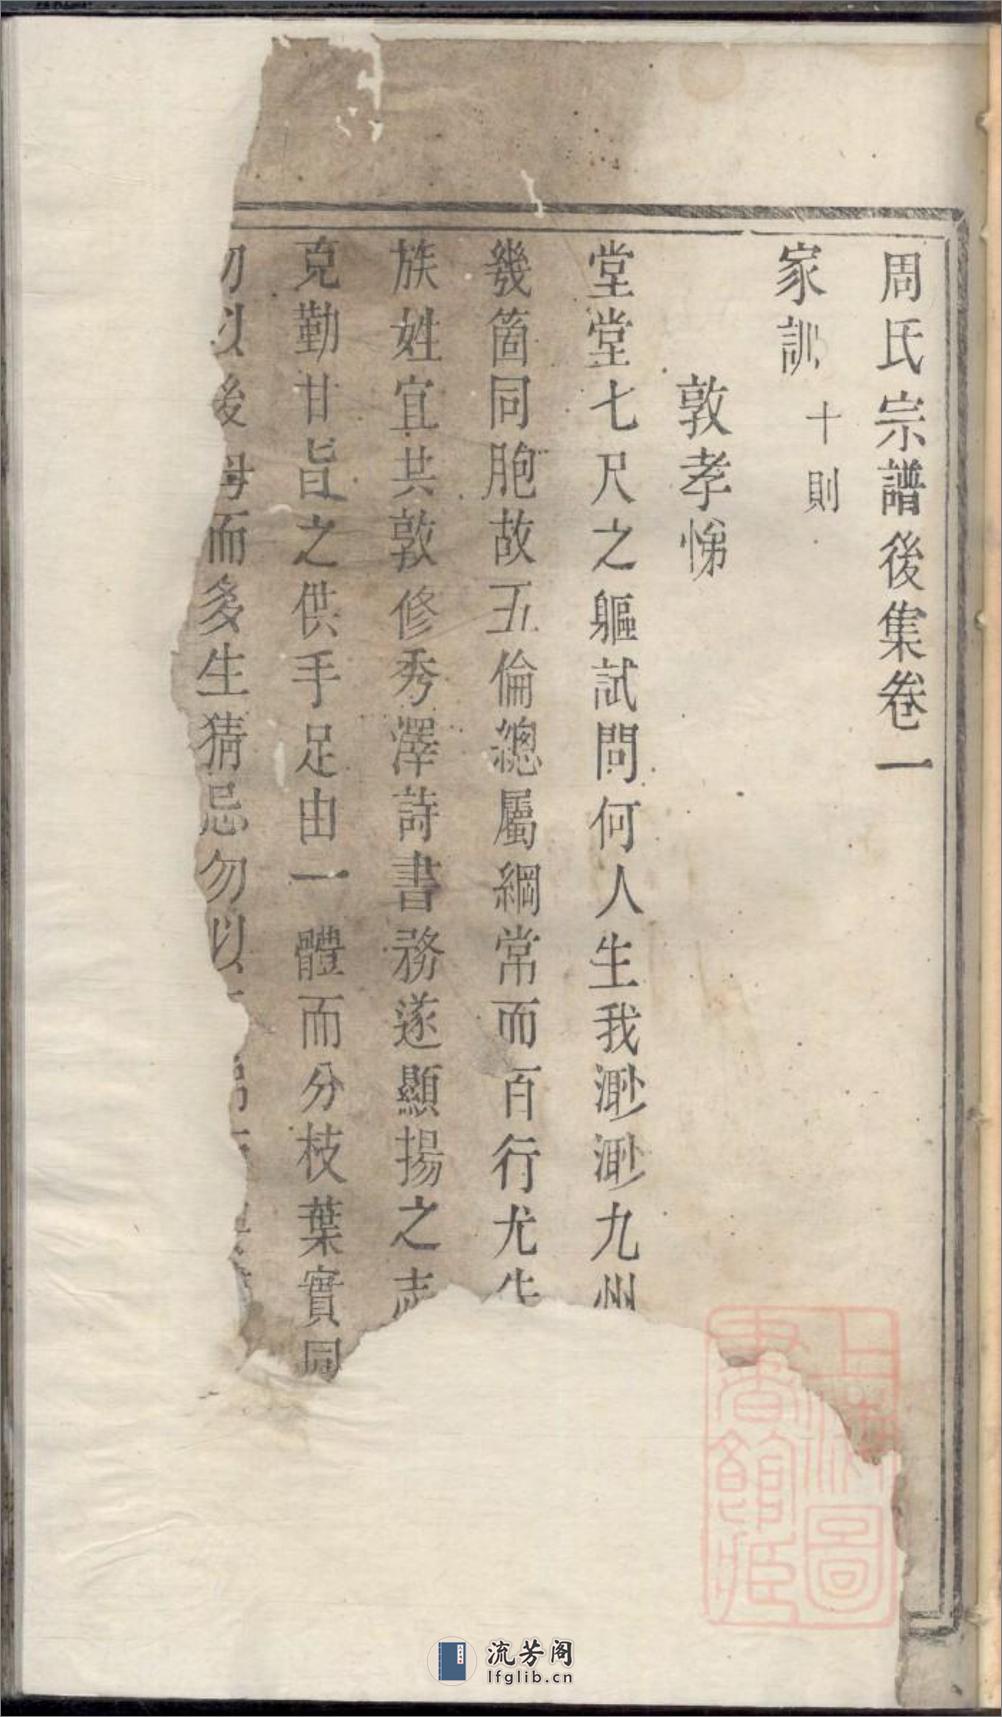 周氏宗譜後集卷一
家訓 十則
敦孝悌
堂堂七尺之軀試問何人生我渺渺九州
幾箇同胞故五倫總屬綱常而百行尤先
族姓宜共敦修秀澤詩書務遂顯揚之志
克勤甘旨之供手足由一體而分枝葉實同
勿以後母而多生猜忌勿以
上海圖書館藏
流芳阁
lfglib.cn